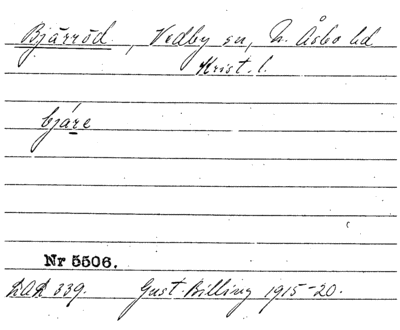 Bjärröd, Vedby sn, N. Åsbo hd
Krist. l.
bjáre
Nr 5506.
DAL 339. Gust. Billing 1915-20.